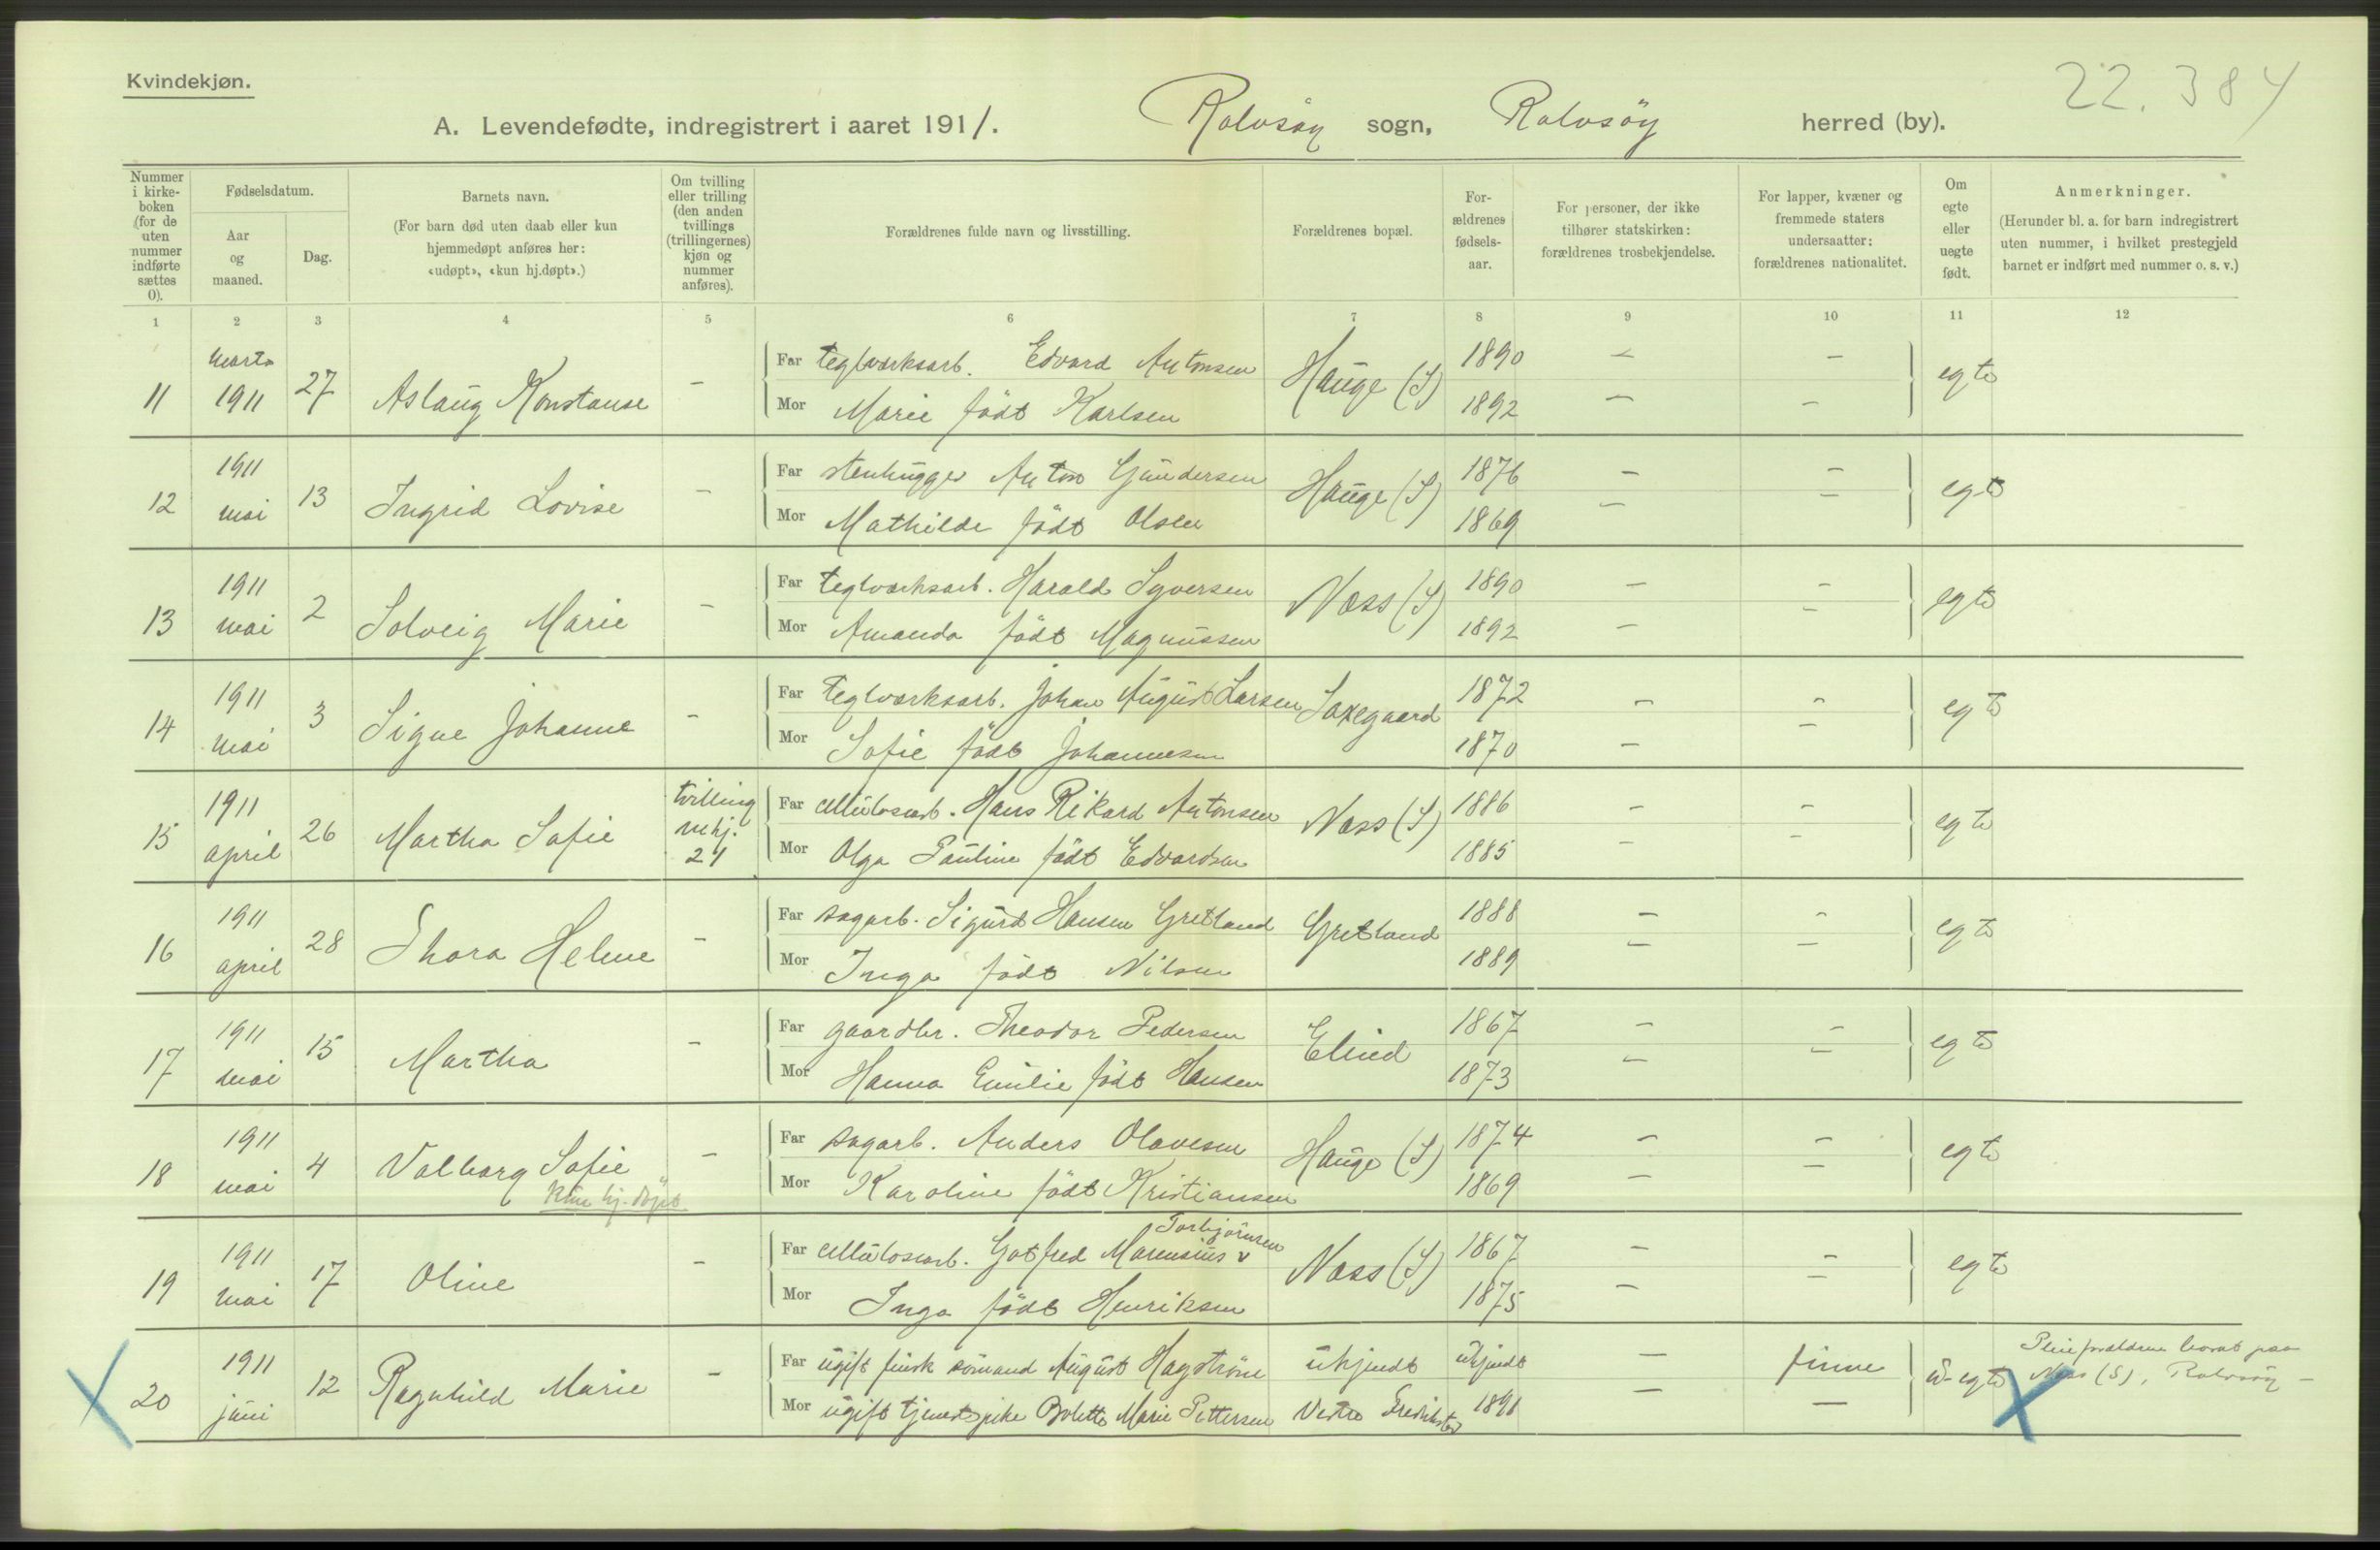 Kvindekjøn.
22. 384
A. Levendefødte, indregistrert i aaret 1911. Rolvsøy sogn, Rolvsöy herred (by).
Nummer i kirke-boken (for de uten nummer indførte sættes 0).
Fødselsdatum.
Aar og maaned.
Dag.
Barnets navn.
(For barn død uten daab eller kun hjemmedøpt anføres her: «udøpt», «kun hj.døpt».)
Om tvilling eller trilling (den anden tvillings (trillingernes) kjøn og nummer anføres).
Forældrenes fulde navn og livsstilling.
Forældrenes bopæl.
For-ældrenes fødsels-aar.
For personer, der ikke tilhører statskirken: forældrenes trosbekjendelse.
For lapper, kvæner og fremmede staters undersaatter: forældrenes nationalitet.
Om egte eller uegte født.
Anmerkninger.
(Herunder bl. a. for barn indregistrert uten nummer, i hvilket prestegjeld barnet er indført med nummer o. s. v.)
1 2 3 4 5 6 7 8 9 10 11 12
11 marts 1911 27 Aslaug Konstanse - Far teglværksarb. Edvard Antonsen Hauge (S) 1890 - - egte
Mor Marie födt Karlsen 1892 - -
12 1911 mai 13 Ingrid Lovise - Far stenhugger Anton Gundersen Hauge (S) 1876 - - egte
Mor Mathilde födt Olsen 1869 - -
13 1911 mai 2 Solveig Marie - Far teglværksarb. Harald Syversen Næss (S) 1890 - - egte
Mor Amanda födt Magnussen 1892 - -
14 1911 mai 3 Signe Johanne - Far teglværksarb. Johan August Larsen Saxegaard 1872 - - egte
Mor Sofie födt Johannesen 1870 - -
15 1911 april 26 Martha Sofie tvilling m hj. 21 Far cellulosearb. Hans Rikard Antonsen Næss (S) 1886 - - egte
Mor Olga Pauline födt Edvardsen 1885 - -
16 1911 april 28 Thora Helene - Far sagarb. Sigurd Hansen Gretland Gretland 1888 - - egte
Mor Inga födt Nilsen 1889 - -
17 1911 mai 15 Martha - Far gaardbr. Theodor Pedersen Elind 1867 - - egte
Mor Hanna Emilie födt Hansen 1873 - -
18 1911 mai 4 Valborg Sofie - Far sagarb. Anders Olavesen Hauge (S) 1874 - - egte
Kun hj. döpt. Mor Karoline födt Kristiansen 1869 - -
Torbjörnsen
19 1911 mai 17 Oline - Far cellulosearb. Gotfred Marensius v Næss (S) 1867 - - egte
Mor Inga födt Henriksen 1875 - -
20 1911 juni 12 Ragnhild Marie - Far ugift finsk sömand August Hagström ukjendt ukjendt - finne u-egte Pleieforældrene bosat paa
Mor ugift tjenestepike Bolette Marie Pettersen Vestre Fredrikstad 1891 - - Næss (S), Rolvsöy -